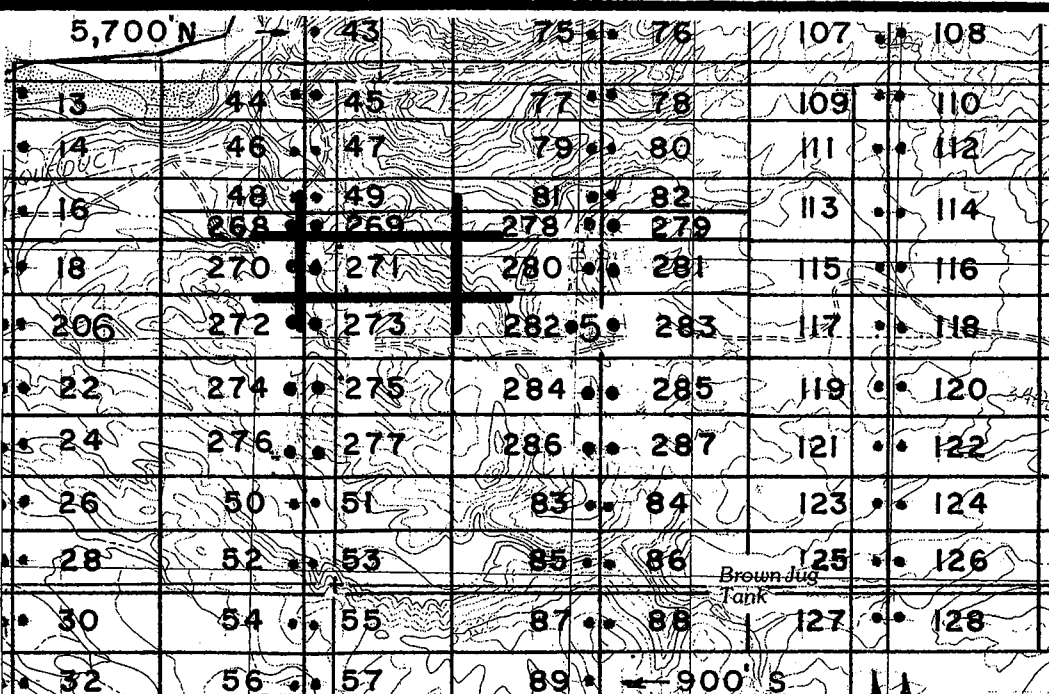 5,700'N 43 75 76 107 108
13 44 45 77 78 109 110
14 46 47 79 80 111 112
16 48 49 81 82 113 114
268 269 278 279
18 270 271 280 281 115 116
206 272 273 282 5 283 117 118
22 274 275 284 285 119 120
24 276 277 286 287 121 122
26 50 51 83 84 123 124
28 52 53 85 86 125 126
Brown Jug
Tank
30 54 55 87 88 127 128
32 56 57 89 900' S